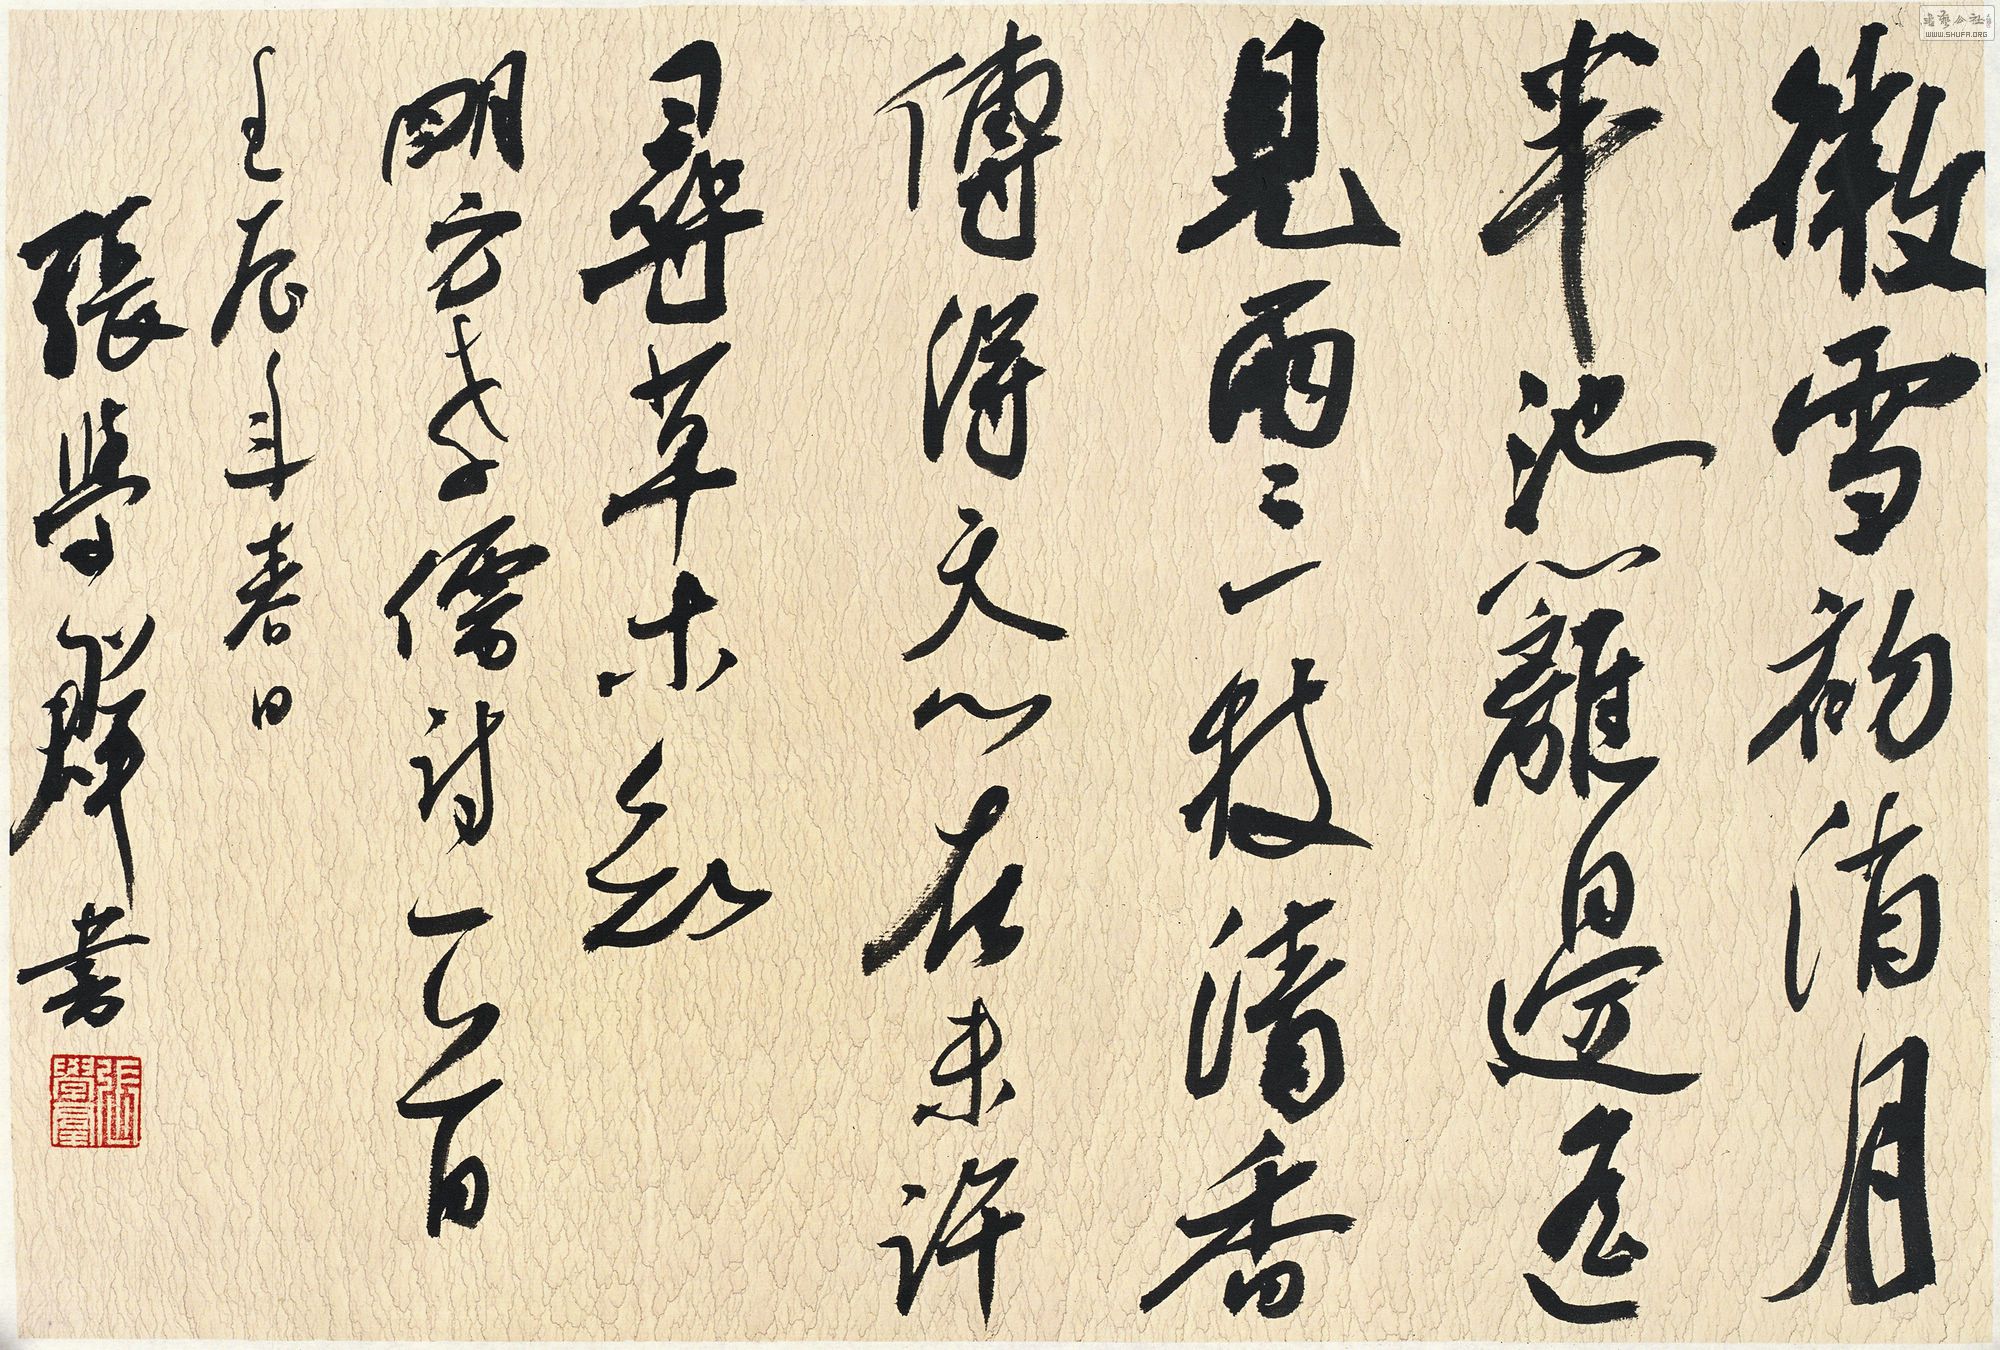 微雪初消月
半池籬邊遥
見兩三枝清香
傳得天心在未許
尋草木知
明方孝孺詩一首
壬辰年春日
張學群書
書藝公社
WWW.SHUFA.ORG